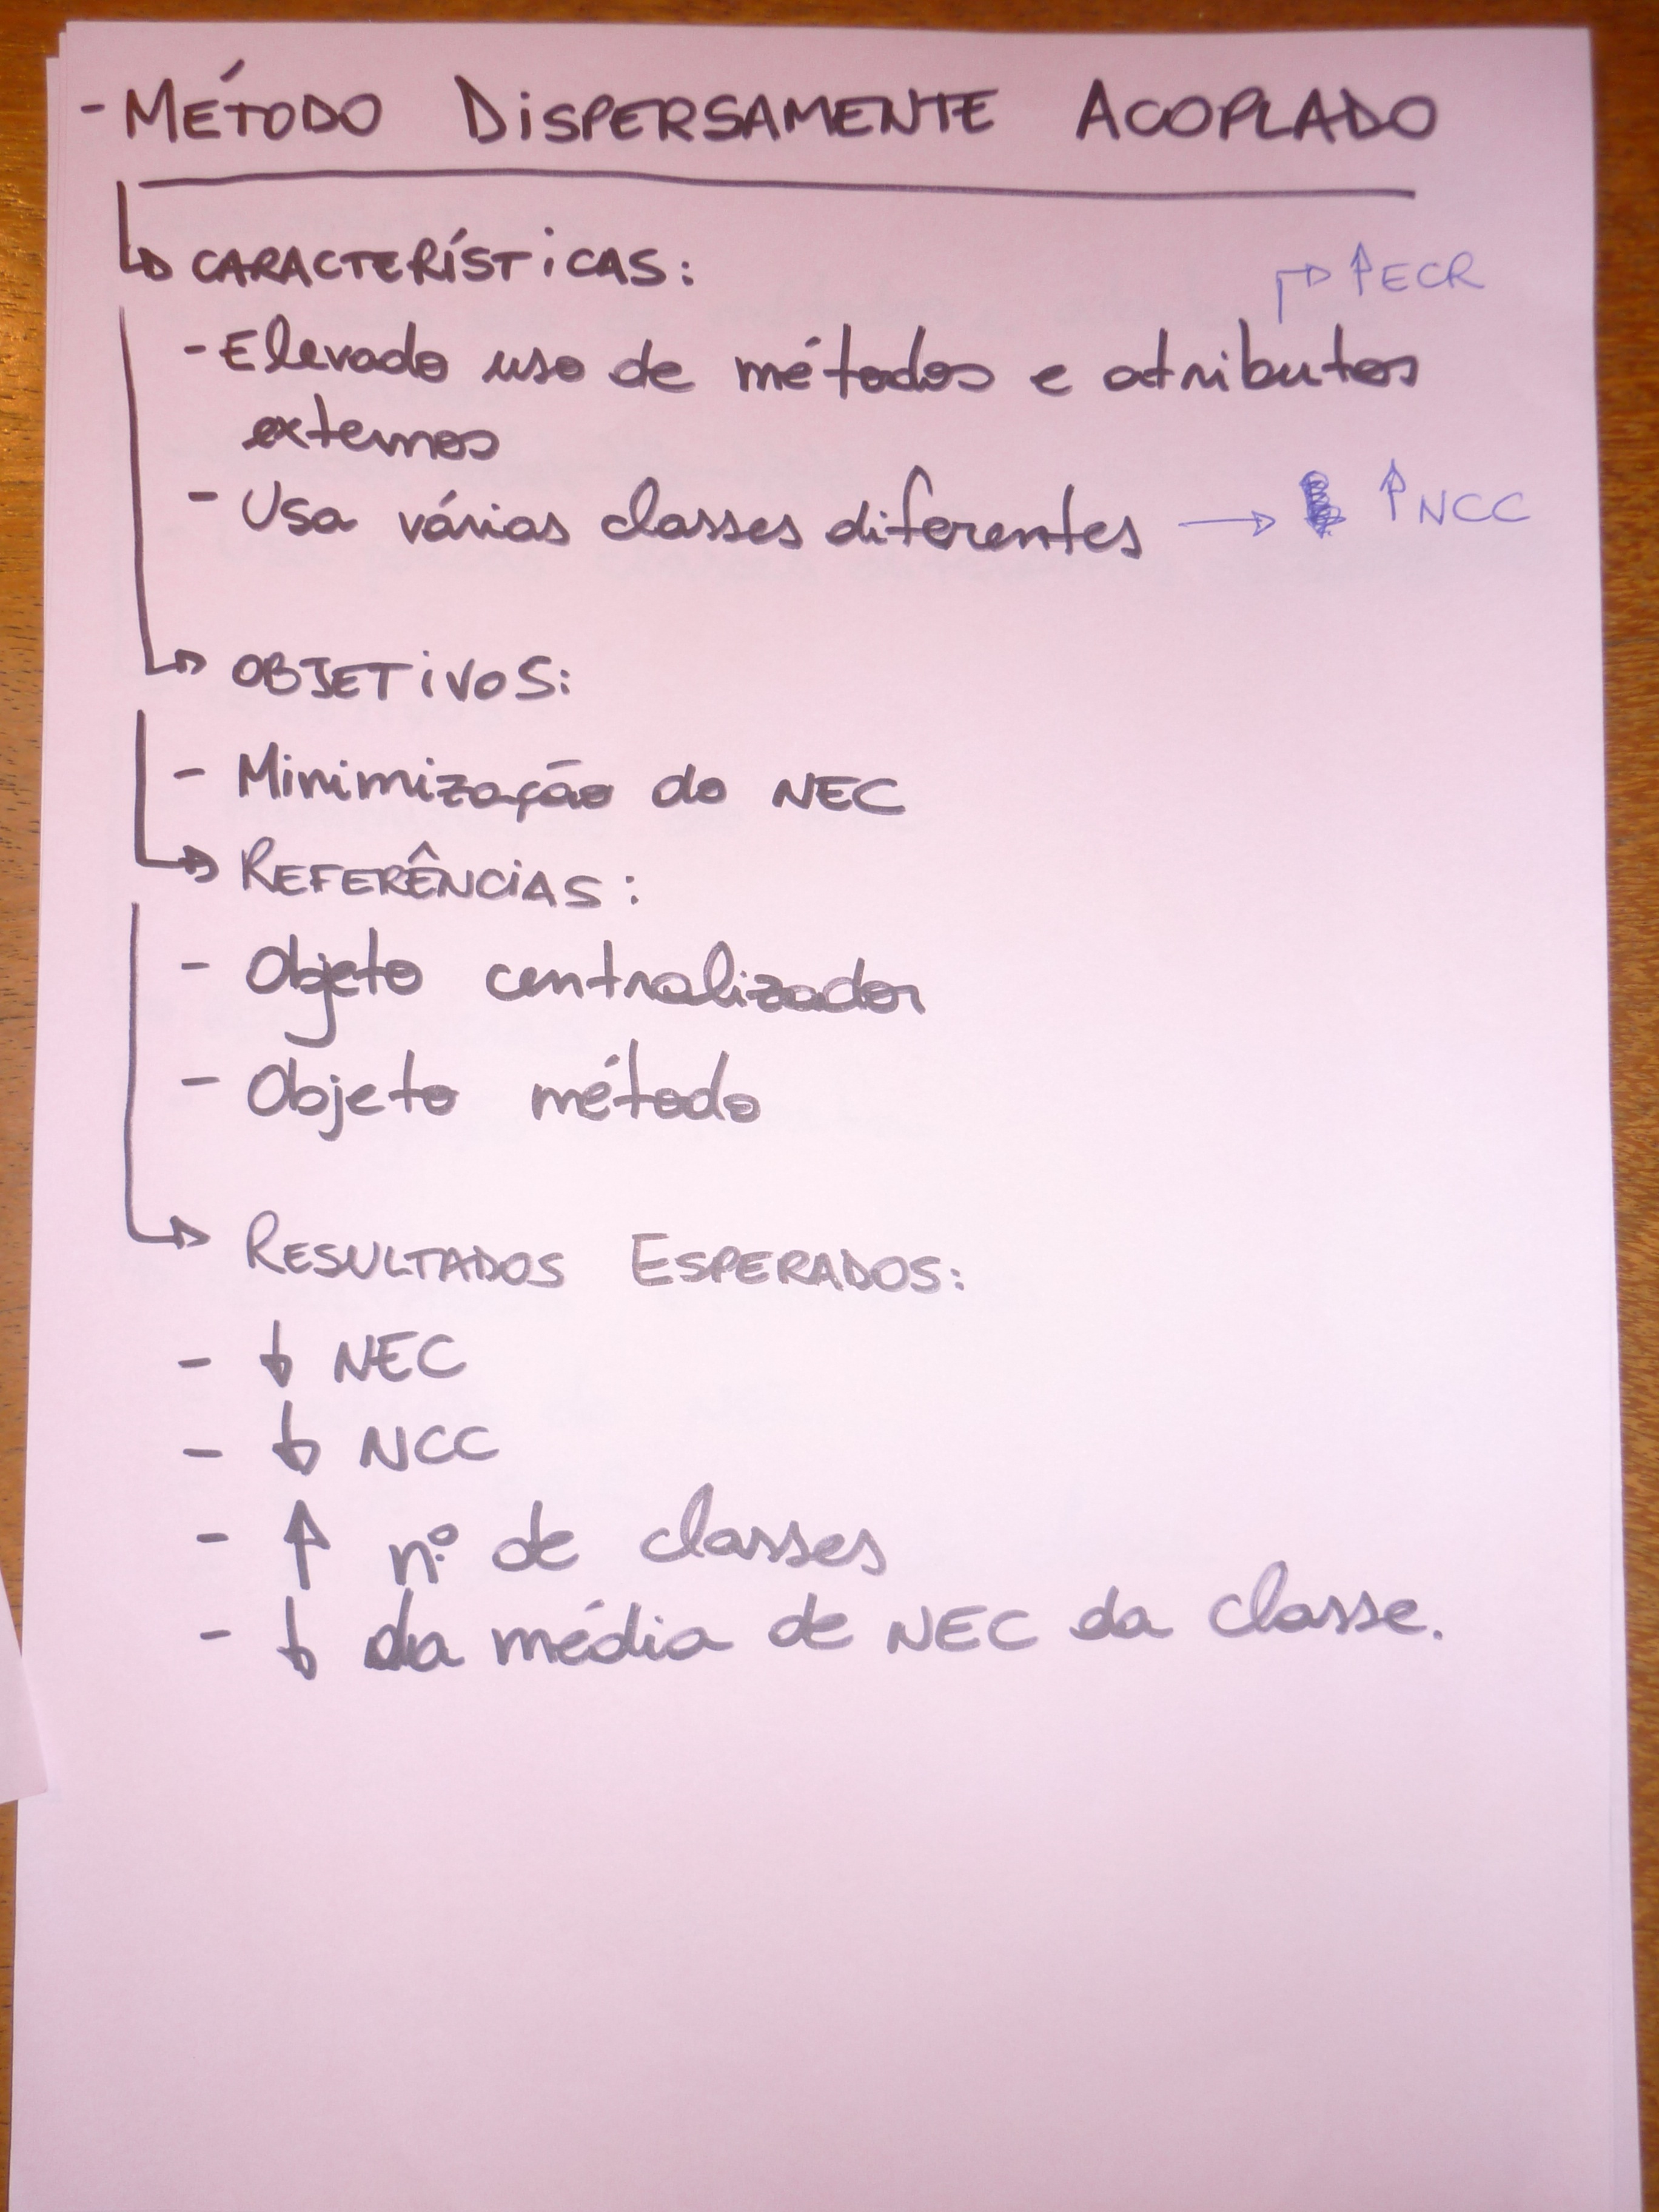 - MÉTODO DISPERSAMENTE ACOPLADO
↳ CARACTERÍSTICAS:
↱ ↑ECR
- Elevado uso de métodos e atributos
externos
- Usa várias classes diferentes → ↑NCC
↳ OBJETIVOS:
- Minimização do NEC
↳ REFERÊNCIAS:
- Objeto centralizador
- Objeto método
↳ RESULTADOS ESPERADOS:
- ↓ NEC
- ↓ NCC
- ↑ nº de classes
- ↓ da média de NEC da classe.